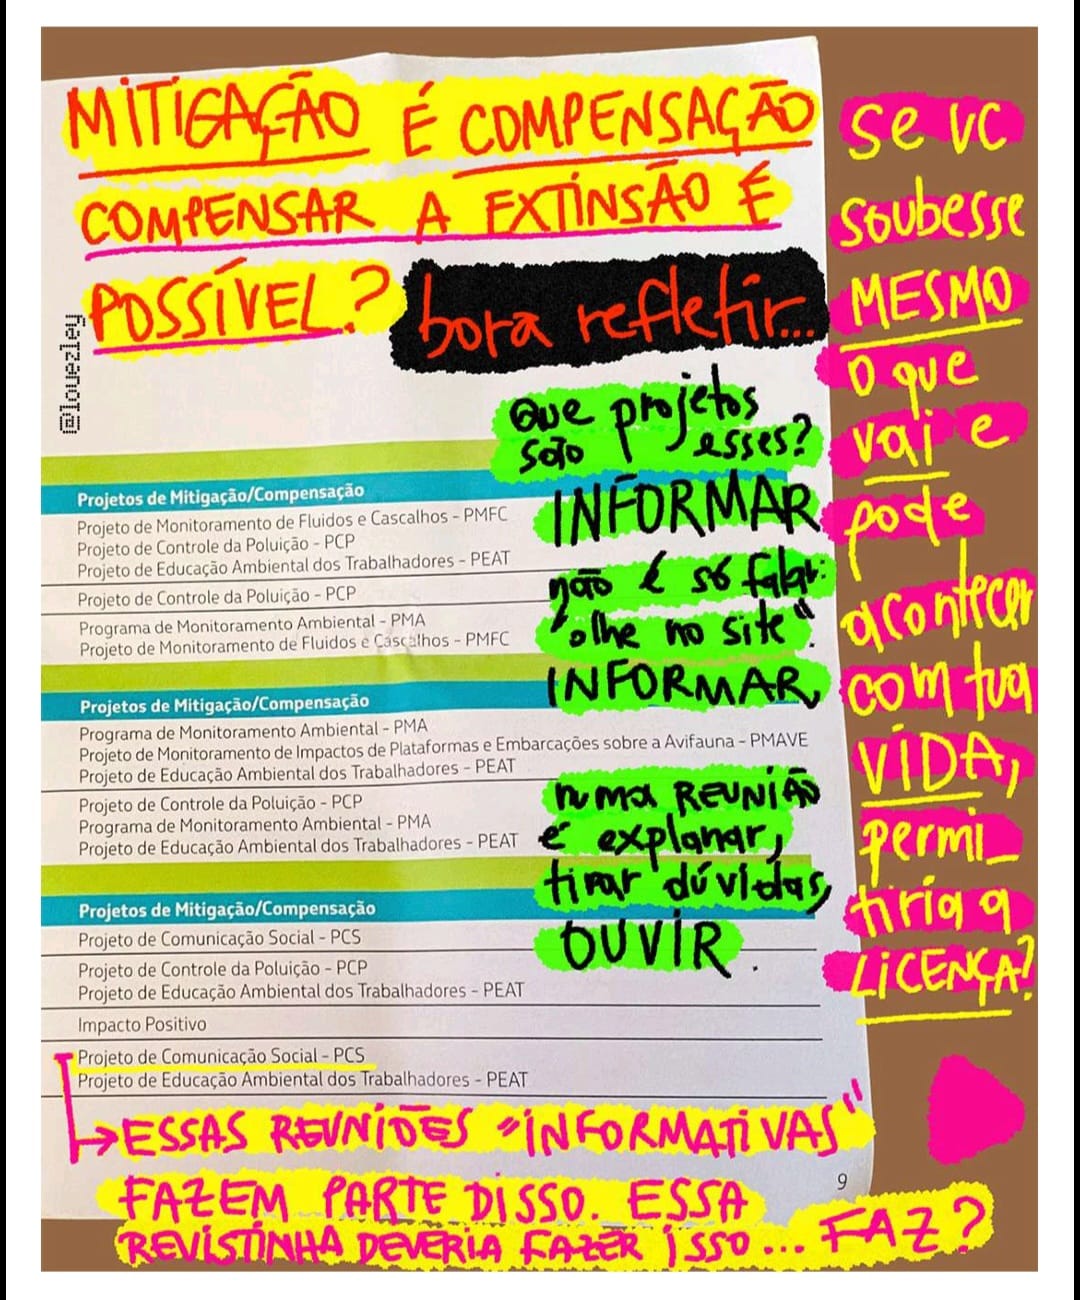 MITIGAÇÃO É COMPENSAÇÃO
COMPENSAR A EXTINSÃO É
POSSÍVEL?
bora refletir...
@louezley
se vc
soubesse
MESMO
o que
vai e
pode
acontecer
com tua
VIDA,
permi_
tiria a
LICENÇA?
Que projetos
são esses?
INFORMAR
não é só falar:
"olhe no site".
INFORMAR,
numa REUNIÃO
é explanar,
tirar dúvidas,
OUVIR.
Projetos de Mitigação/Compensação
Projeto de Monitoramento de Fluidos e Cascalhos - PMFC
Projeto de Controle da Poluição - PCP
Projeto de Educação Ambiental dos Trabalhadores - PEAT
Projeto de Controle da Poluição - PCP
Programa de Monitoramento Ambiental - PMA
Projeto de Monitoramento de Fluidos e Cascalhos - PMFC
Projetos de Mitigação/Compensação
Programa de Monitoramento Ambiental - PMA
Projeto de Monitoramento de Impactos de Plataformas e Embarcações sobre a Avifauna - PMAVE
Projeto de Educação Ambiental dos Trabalhadores - PEAT
Projeto de Controle da Poluição - PCP
Programa de Monitoramento Ambiental - PMA
Projeto de Educação Ambiental dos Trabalhadores - PEAT
Projetos de Mitigação/Compensação
Projeto de Comunicação Social - PCS
Projeto de Controle da Poluição - PCP
Projeto de Educação Ambiental dos Trabalhadores - PEAT
Impacto Positivo
Projeto de Comunicação Social - PCS
Projeto de Educação Ambiental dos Trabalhadores - PEAT
ESSAS REUNIÕES "INFORMATIVAS"
FAZEM PARTE DISSO. ESSA
REVISTINHA DEVERIA FAZER ISSO... FAZ?
9